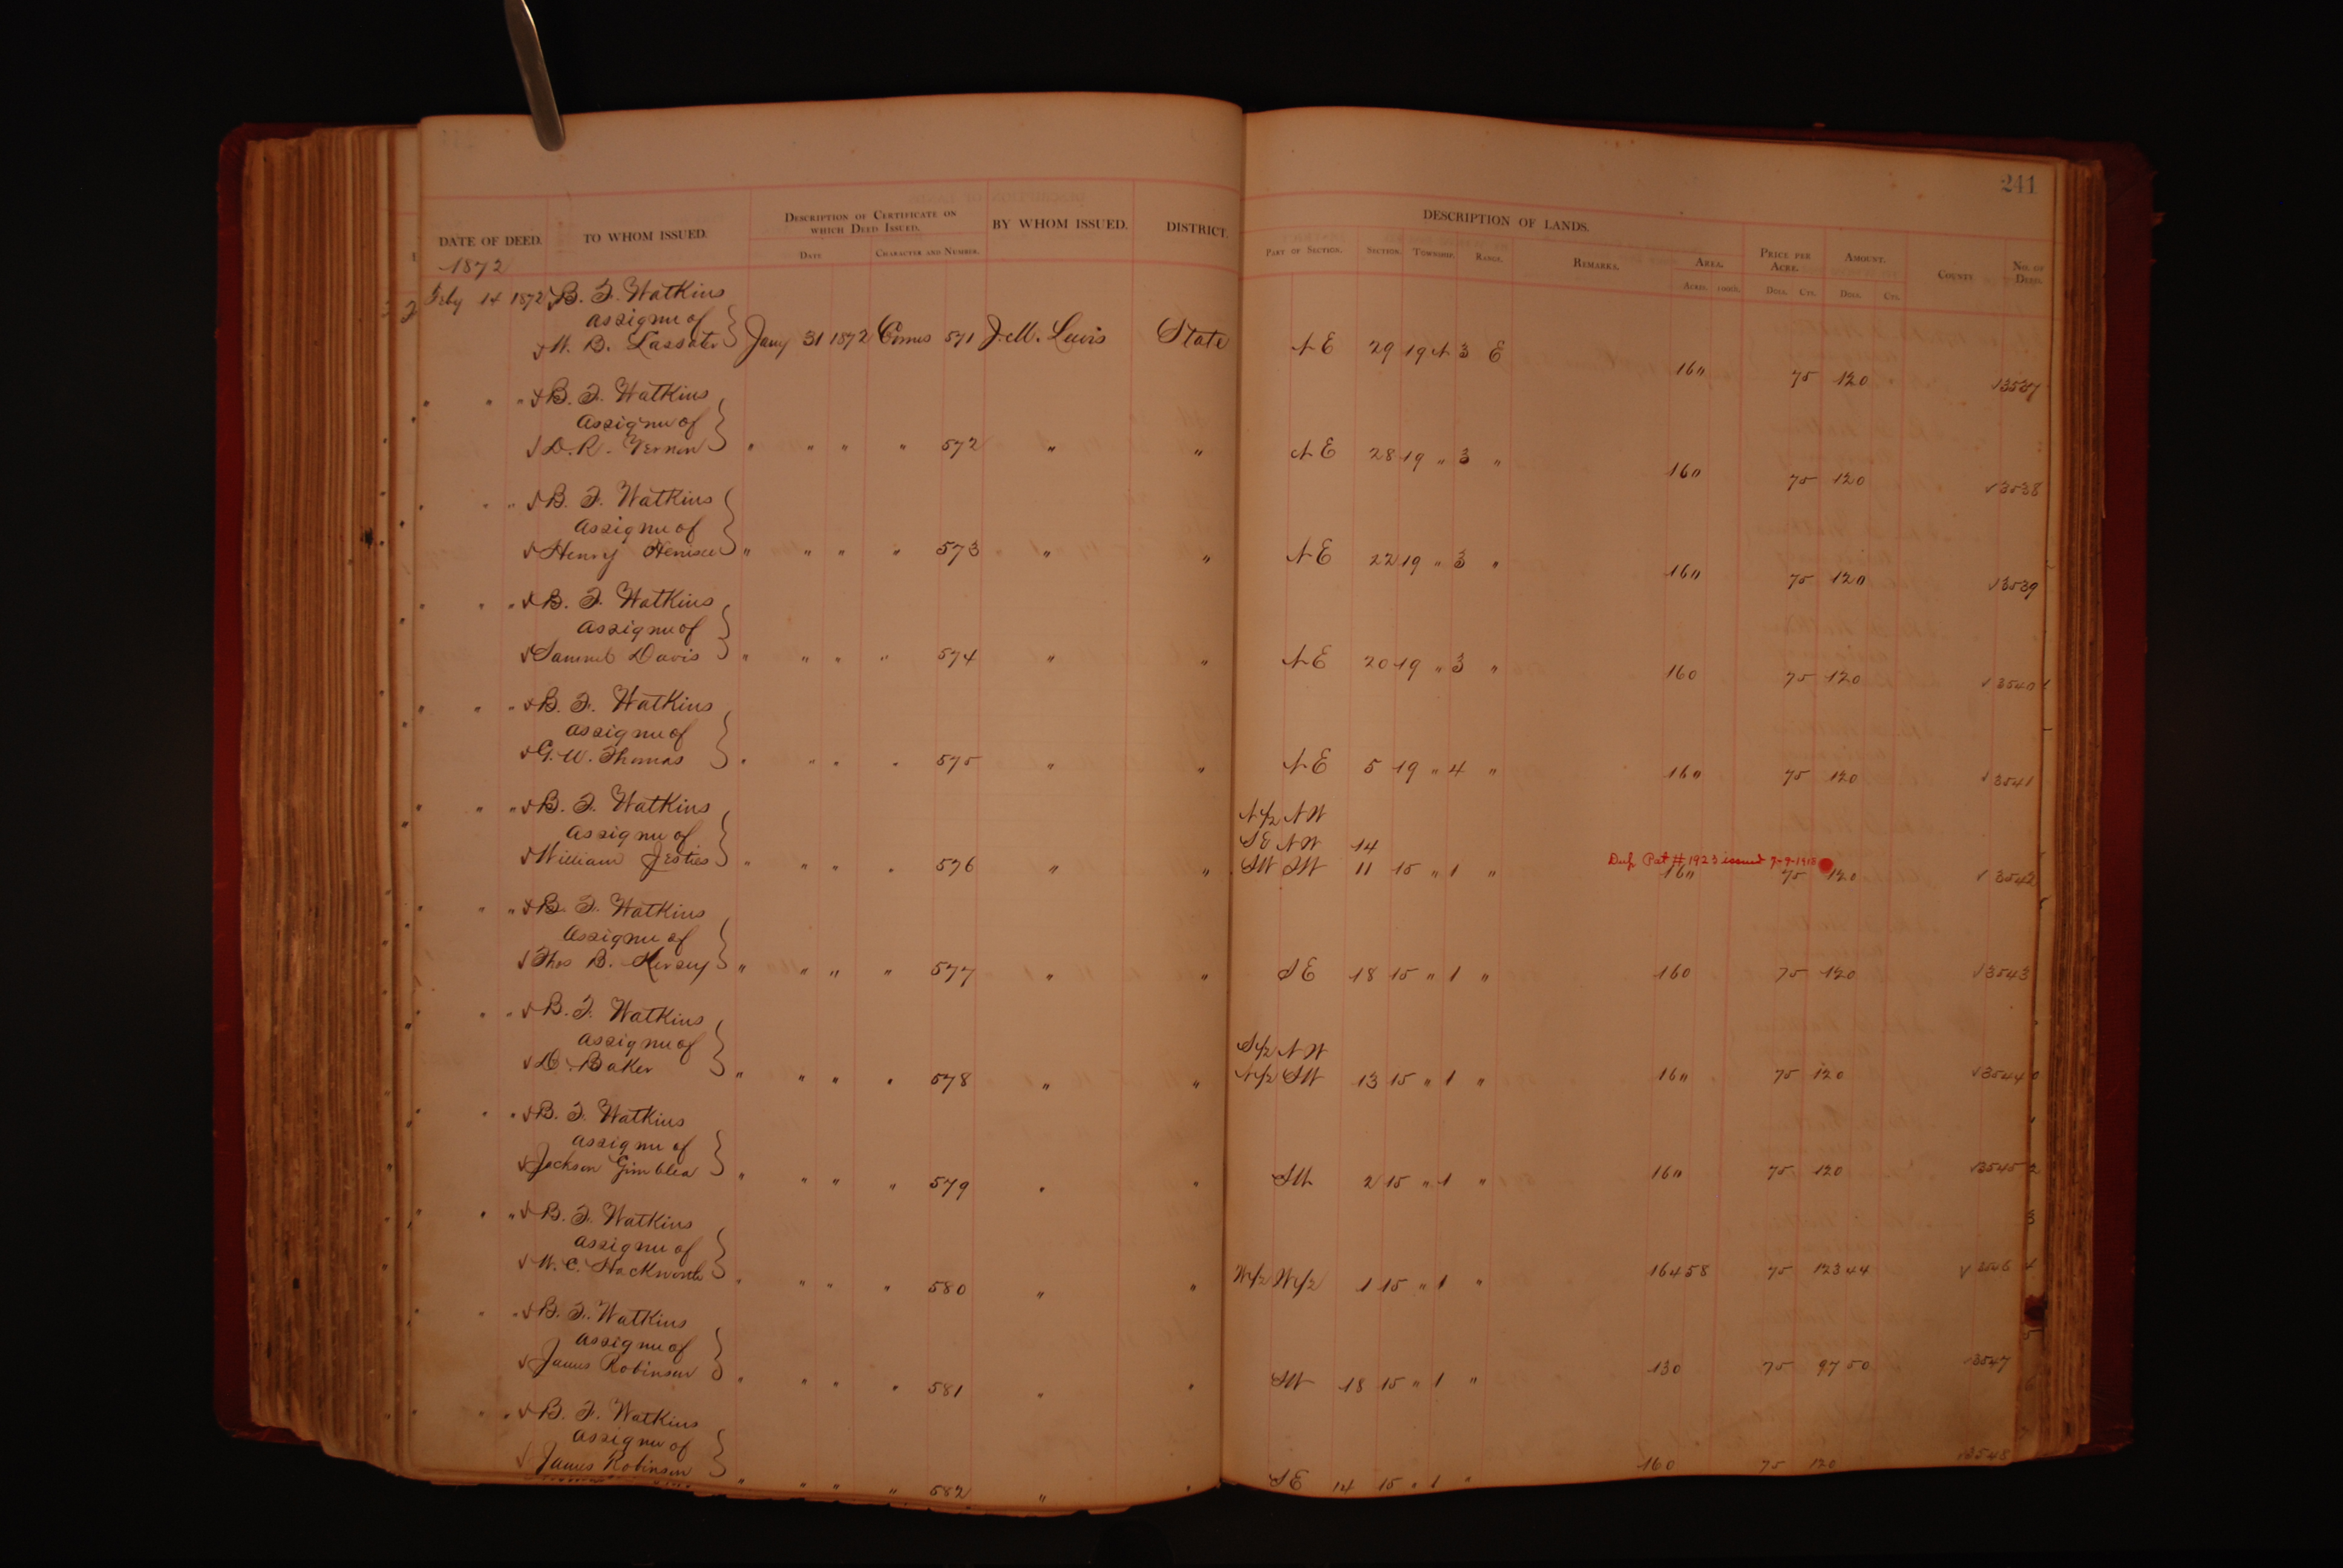 241
DATE OF DEED. TO WHOM ISSUED. DESCRIPTION OF CERTIFICATE ON WHICH DEED ISSUED. BY WHOM ISSUED. DISTRICT. DESCRIPTION OF LANDS. PRICE PER ACRE. AMOUNT. COUNTY NO. OF DEED.
DATE CHARACTER AND NUMBER. PART OF SECTION. SECTION. TOWNSHIP. RANGE. REMARKS. AREA.
ACRES. 100ths. DOLS. CTS. DOLS. CTS.
1872
Feby 14 1872 B. F. Watkins
assignee of
W. B. Lassater Jany 31 1872 571 J. M. Lewis State N E 29 19 N 3 E 160 75 120 3537
" " " B. F. Watkins
assignee of
D. R. Vernon " " " " 572 " " N E 28 19 " 3 " 160 75 120 3538
" " " B. F. Watkins
assignee of
Henry " " " " 573 " " N E 22 19 " 3 " 160 75 120 3539
" " " B. F. Watkins
assignee of
Samuel Davis " " " " 574 " " N E 20 19 " 3 " 160 75 120 3540
" " " B. F. Watkins
assignee of
G. W. Thomas " " " " 575 " " N E 5 19 " 4 " 160 75 120 3541
" " " B. F. Watkins N 1/2 N W
assignee of S E N W 14
William " " " " 576 " " S W S W 11 15 " 1 " 160 75 120 3542
Dup Pat # 1923 issued 7-9-1918
" " " B. F. Watkins
assignee of
Thos B. Kersey " " " " 577 " " S E 18 15 " 1 " 160 75 120 3543
" " " B. F. Watkins
assignee of S 1/2 N W
D. Baker " " " " 578 " " N 1/2 S W 13 15 " 1 " 160 75 120 3544
" " " B. F. Watkins
assignee of
Jackson " " " " 579 " " S W 2 15 " 1 " 160 75 120 3545
" " " B. F. Watkins
assignee of
W. C. Hackworth " " " " 580 " " W 1/2 W 1/2 1 15 " 1 " 164 58 75 123 44 3546
" " " B. F. Watkins
assignee of
James Robinson " " " " 581 " " S W 18 15 " 1 " 130 75 97 50 3547
" " " B. F. Watkins
assignee of
James Robinson " " " " 582 " " S E 14 15 " 1 " 160 75 120 3548